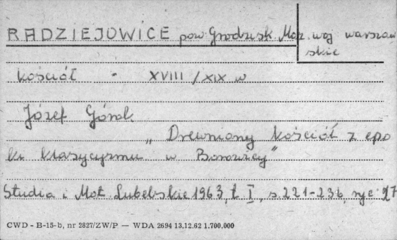 RADZIEJOWICE pow. Grodzisk Maz. woj warszaw
skie
kościół - XVIII/XIX w
Józef Górak
"Drewniany kościół z epo
ki klasycyzmu w Borowicy"
Studia i Mat. Lubelskie 1963, t I, s 221-236, ryc 17
CWD - B-13-b, nr 2827/ZW/P — WDA 2694 13.12.62 1.700.000